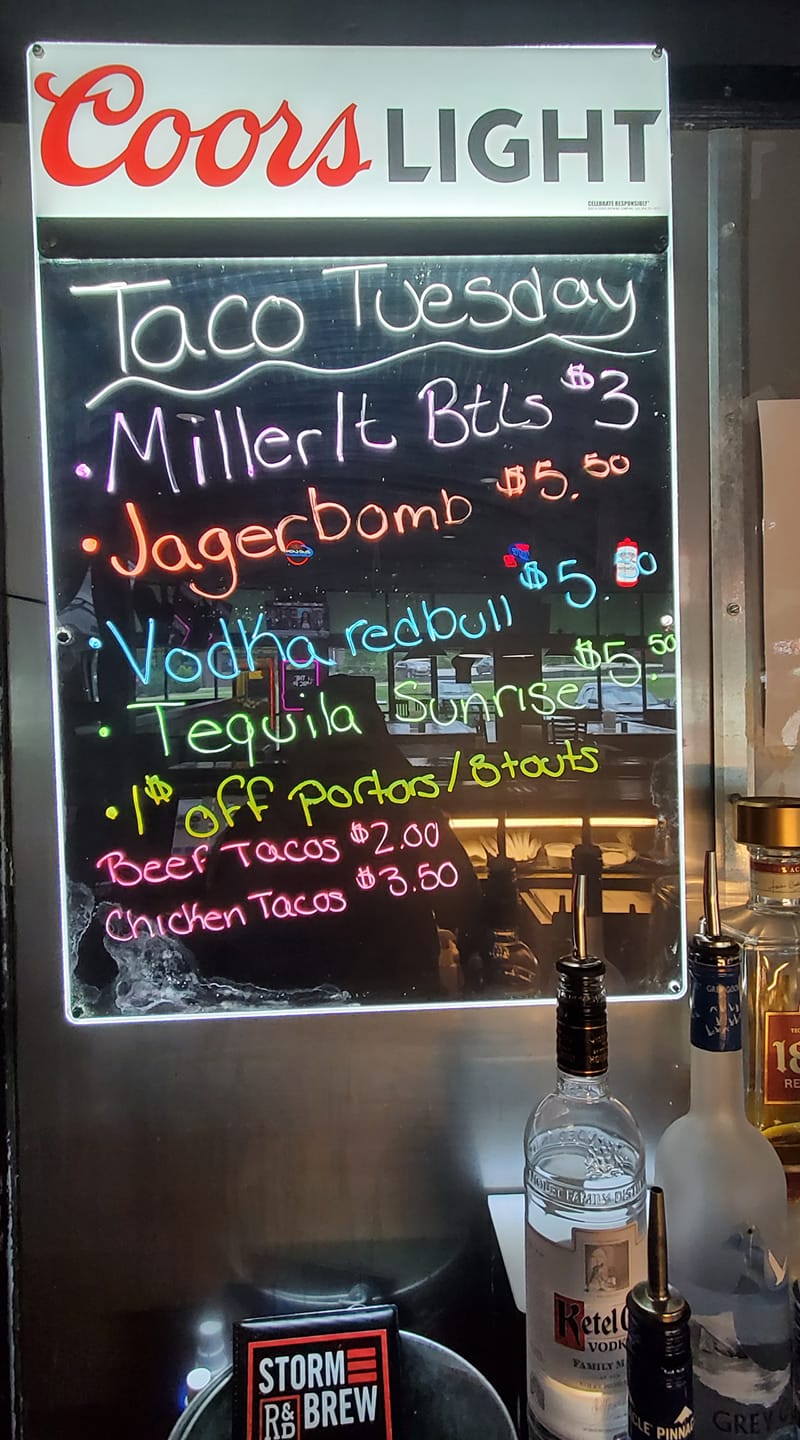 Coors LIGHT
CELEBRATE RESPONSIBLY
Taco Tuesday
• Miller lt Btls $3
• Jagerbomb $5.50
• Vodka redbull $5.
• Tequila Sunrise $5.50
• 1$ off Portors/Stouts
Beef Tacos $2.00
Chicken Tacos $3.50
Ketel
VODK
FAMILY M
STORM
R&D BREW
PINNA
GREY
18
RE